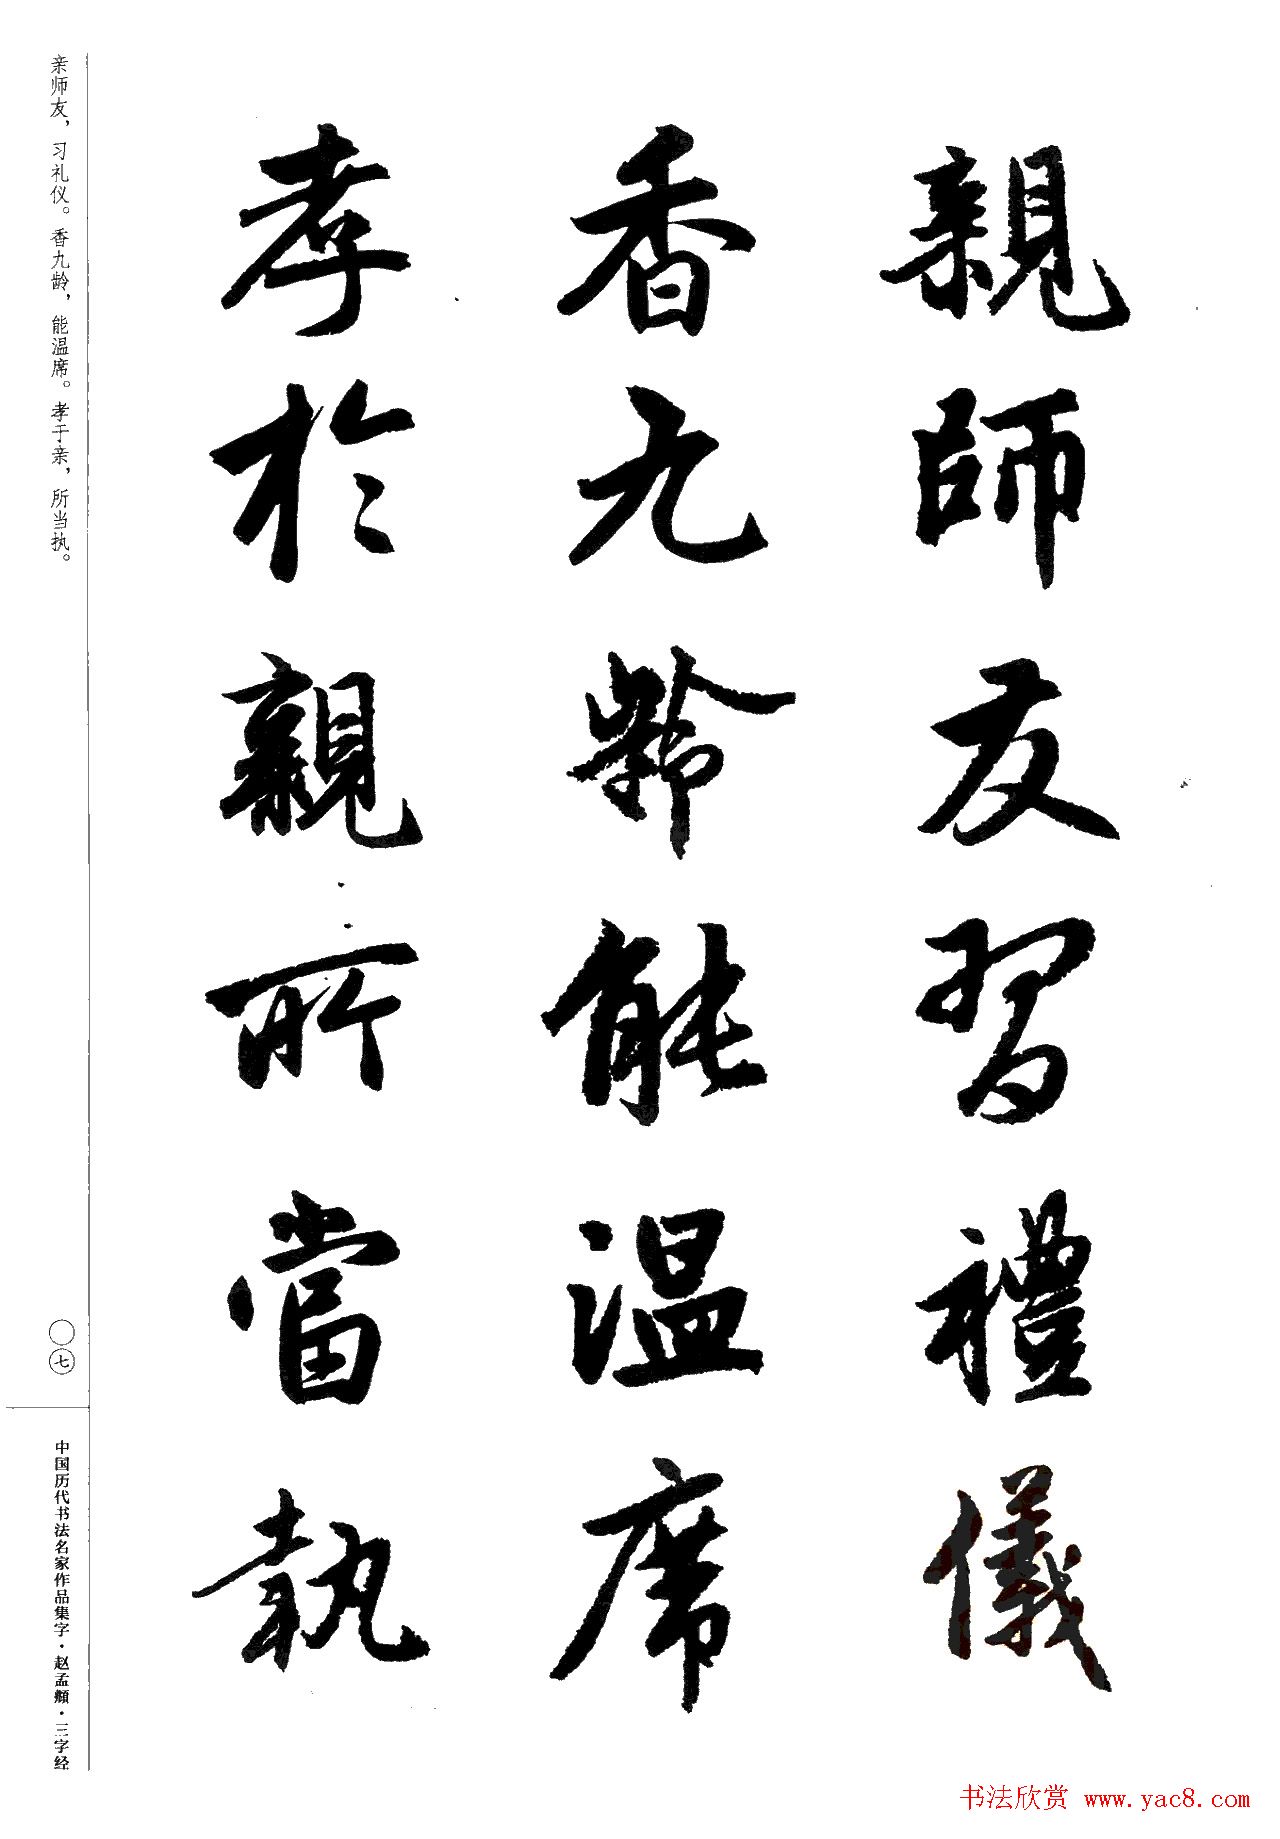 親師友習禮儀
香九齡能温席
孝於親所當執
亲师友，习礼仪。香九龄，能温席。孝于亲，所当执。
〇七
中国历代书法名家作品集字·赵孟頫·三字经
书法欣赏 www.yac8.com